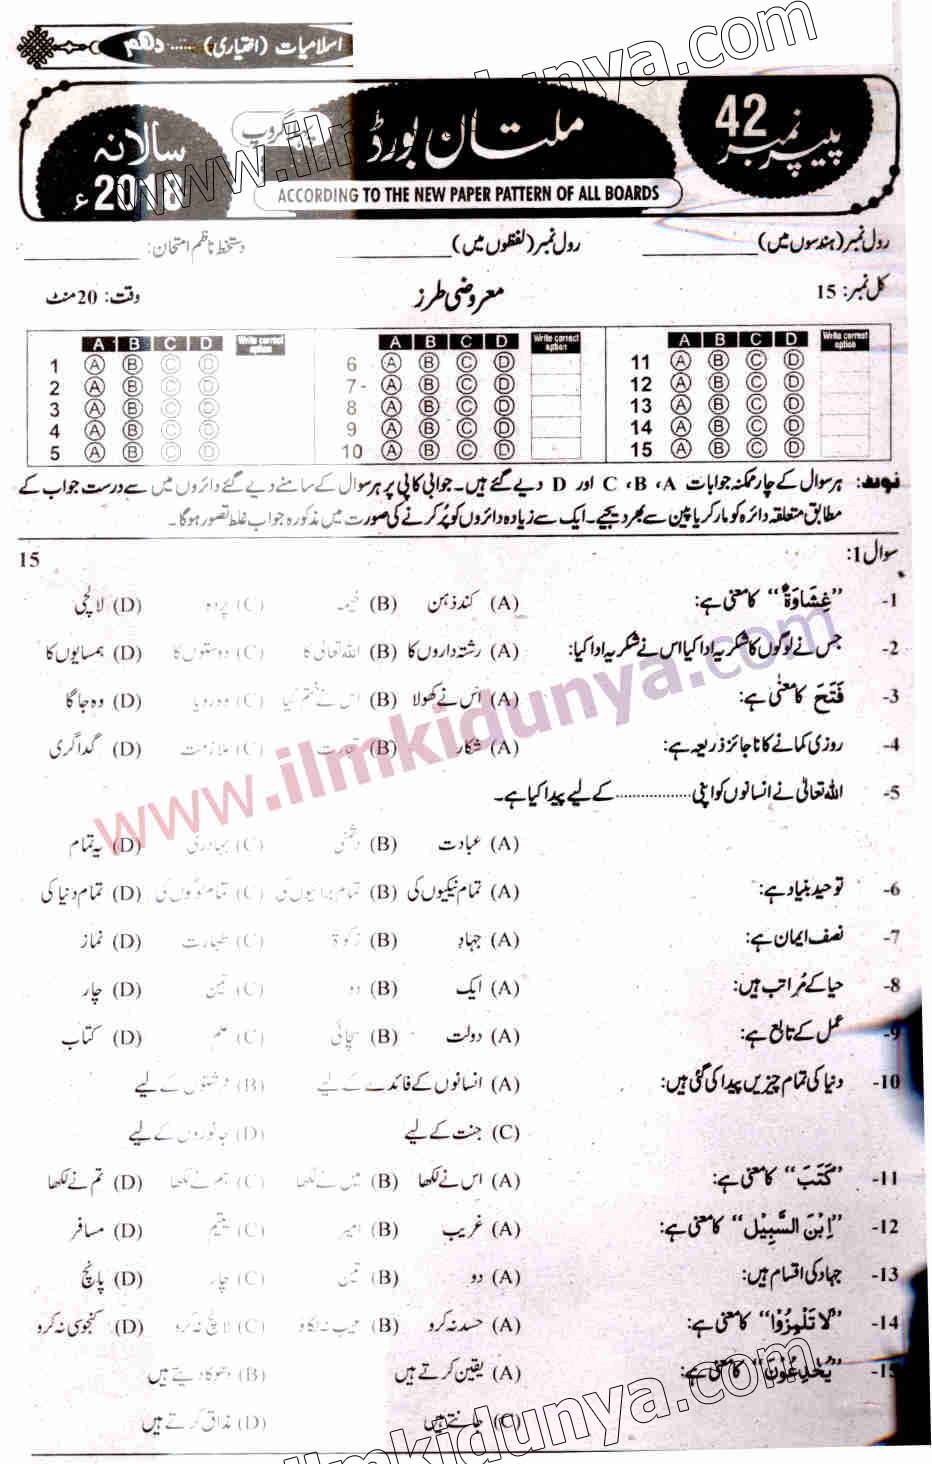 اسلامیات (اختیاری) ..... دھم
پیپر نمبر 42
ملتان بورڈ
سالانہ 2018ء
ACCORDING TO THE NEW PAPER PATTERN OF ALL BOARDS
رول نمبر (ہندسوں میں) ________ رول نمبر (لفظوں میں) ________ دستخط ناظم امتحان: ________
کل نمبر: 15 معروضی طرز وقت: 20 منٹ
A B C D Write correct option A B C D Write correct option A B C D Write correct option
1 A B C D 6 A B C D 11 A B C D
2 A B C D 7 A B C D 12 A B C D
3 A B C D 8 A B C D 13 A B C D
4 A B C D 9 A B C D 14 A B C D
5 A B C D 10 A B C D 15 A B C D
نوٹ: ہر سوال کے چار ممکنہ جوابات A، B، C اور D دیے گئے ہیں۔ جوابی کاپی پر ہر سوال کے سامنے دیے گئے دائروں میں سے درست جواب کے
مطابق متعلقہ دائرہ کو مارکر یا پین سے بھر دیجیے۔ ایک سے زیادہ دائروں کو پُر کرنے کی صورت میں مذکورہ جواب غلط تصور ہوگا۔
سوال 1: 15
-1 ”غِشَاوَةٌ“ کا معنی ہے: (A) کند ذہن (B) خیمہ (C) پردہ (D) لالچی
-2 جس نے لوگوں کا شکریہ ادا کیا اس نے شکریہ ادا کیا: (A) رشتہ داروں کا (B) اللہ تعالیٰ کا (C) دوستوں کا (D) ہمسایوں کا
-3 فَتَحَ کا معنٰی ہے: (A) اس نے کھولا (B) اس نے ختم کیا (C) وہ رویا (D) وہ جاگا
-4 روزی کمانے کا ناجائز ذریعہ ہے: (A) شکار (B) تجارت (C) ملازمت (D) گداگری
-5 اللہ تعالیٰ نے انسانوں کو اپنی .................. کے لیے پیدا کیا ہے۔
(A) عبادت (B) دشمنی (C) بہادری (D) یہ تمام
-6 توحید بنیاد ہے: (A) تمام نیکیوں کی (B) تمام برائیوں کی (C) تمام لوگوں کی (D) تمام دنیا کی
-7 نصف ایمان ہے: (A) جہاد (B) زکوٰۃ (C) طہارت (D) نماز
-8 حیا کے مراتب ہیں: (A) ایک (B) دو (C) تین (D) چار
-9 عمل کے تابع ہے: (A) دولت (B) سچائی (C) علم (D) کتاب
-10 دنیا کی تمام چیزیں پیدا کی گئی ہیں: (A) انسانوں کے فائدے کے لیے (B) فرشتوں کے لیے
(C) جنت کے لیے (D) جانوروں کے لیے
-11 ”کَتَبَ“ کا معنی ہے: (A) اس نے لکھا (B) میں نے لکھا (C) ہم نے لکھا (D) تم نے لکھا
-12 ”اِبْنَ السَّبِیْل“ کا معنی ہے: (A) غریب (B) امیر (C) یتیم (D) مسافر
-13 جہاد کی اقسام ہیں: (A) دو (B) تین (C) چار (D) پانچ
-14 ”لَا تَلْمِزُوْا“ کا معنی ہے: (A) حسد نہ کرو (B) عیب نہ لگاؤ (C) لالچ نہ کرو (D) کنجوسی نہ کرو
-15 ”یُخٰدِعُوْنَ“ کا معنی ہے: (A) یقین کرتے ہیں (B) دھوکا دیتے ہیں
(C) جانتے ہیں (D) مذاق کرتے ہیں
www.ilmkidunya.com